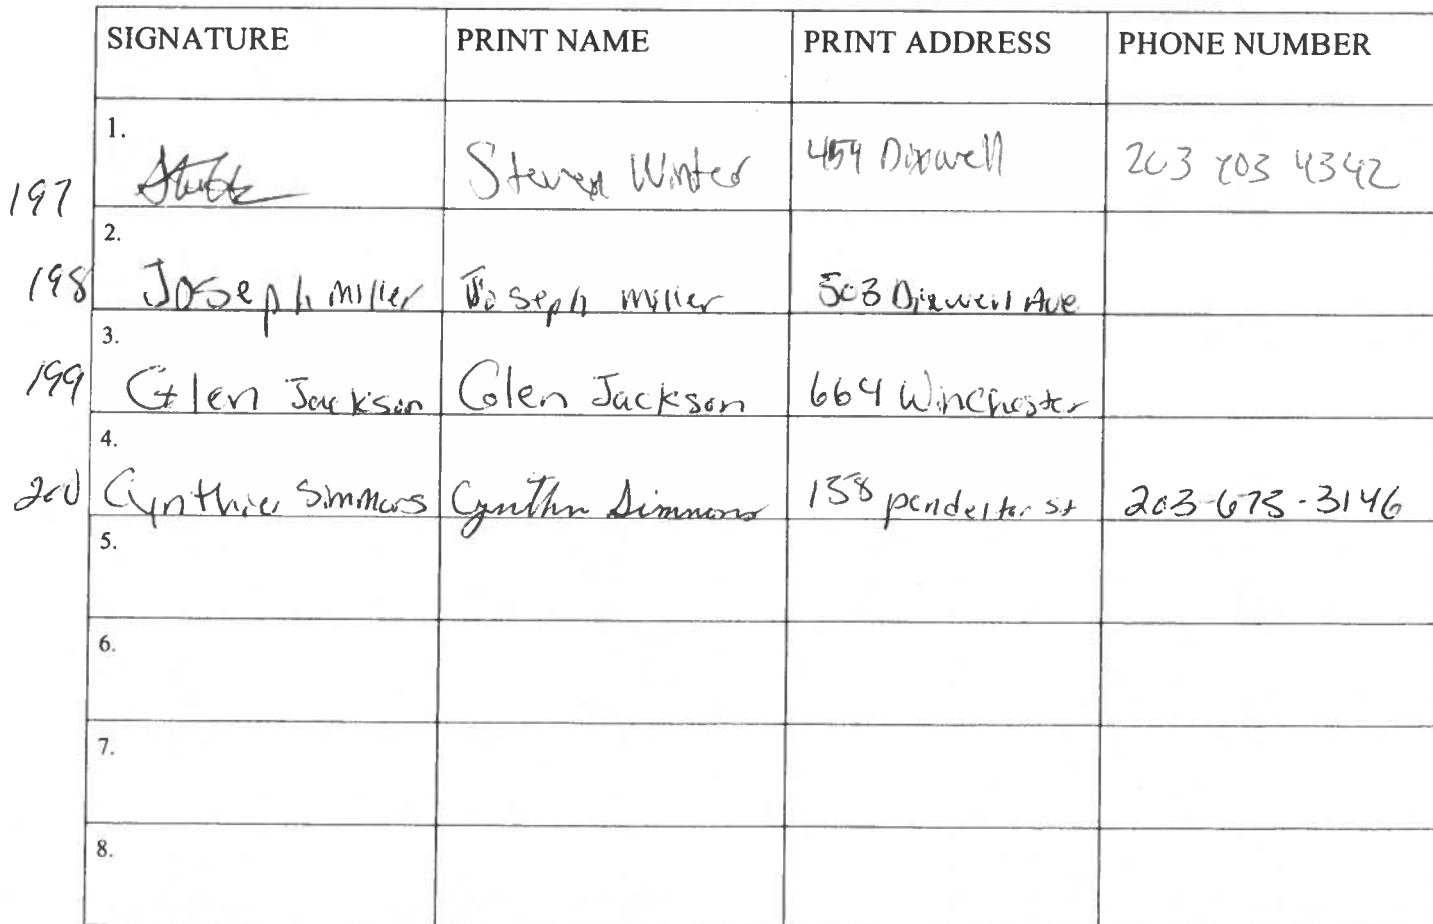 SIGNATURE PRINT NAME PRINT ADDRESS PHONE NUMBER
1.
197 Steven Winter 454 Dixwell 203 703 4342
2.
198 Joseph Miller Joseph Miller 503 Dixwell Ave
3.
199 Glen Jackson Glen Jackson 664 Winchester
4.
200 Cynthia Simmons Cynthia Simmons 158 St 203-675-3146
5.
6.
7.
8.